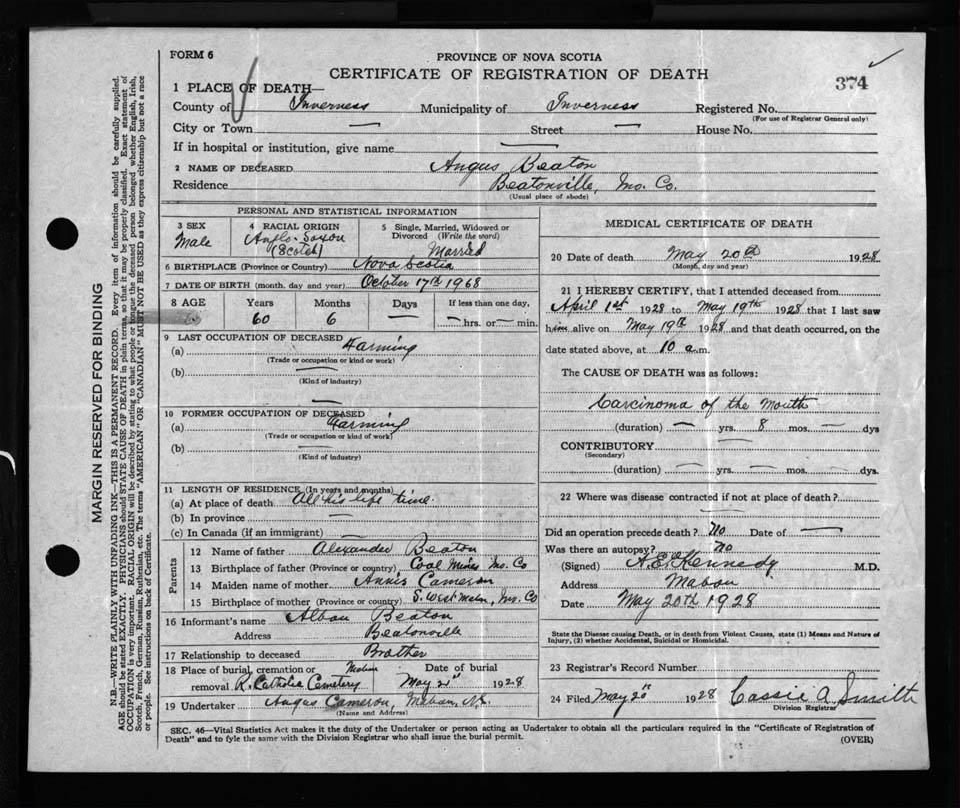 FORM 6
PROVINCE OF NOVA SCOTIA
CERTIFICATE OF REGISTRATION OF DEATH
374
1 PLACE OF DEATH—
County of Inverness Municipality of Inverness Registered No.
(For use of Registrar General only)
City or Town — Street — House No.
If in hospital or institution, give name —
2 NAME OF DECEASED Angus Beaton
Residence Beatonville, Inv. Co.
(Usual place of abode)
PERSONAL AND STATISTICAL INFORMATION
3 SEX Male
4 RACIAL ORIGIN Anglo-Saxon (Scotch)
5 Single, Married, Widowed or Divorced (Write the word) Married
6 BIRTHPLACE (Province or Country) Nova Scotia
7 DATE OF BIRTH (month, day and year) October 17th 1968
8 AGE Years Months Days If less than one day,
60 6 — — hrs. or — min.
9 LAST OCCUPATION OF DECEASED
(a) Farming
(Trade or occupation or kind or work)
(b) —
(Kind of industry)
10 FORMER OCCUPATION OF DECEASED
(a) Farming
(Trade or occupation or kind of work)
(b) —
(Kind of industry)
11 LENGTH OF RESIDENCE (In years and months)
(a) At place of death All his life time.
(b) In province —
(c) In Canada (if an immigrant) —
Parents
12 Name of father Alexander Beaton
13 Birthplace of father (Province or country) Coal Mines Inv. Co
14 Maiden name of mother Annie Cameron
15 Birthplace of mother (Province or country) S. West Mabou, Inv. Co
16 Informant's name Alban Beaton
Address Beatonville
17 Relationship to deceased Brother
18 Place of burial, cremation or removal Mabou R. Catholic Cemetery Date of burial May 1928
19 Undertaker Angus Cameron, Mabou, N.S.
(Name and Address)
MEDICAL CERTIFICATE OF DEATH
20 Date of death May 20th 1928
(Month, day and year)
21 I HEREBY CERTIFY, that I attended deceased from
April 1st 1928 to May 19th 1928 that I last saw
him alive on May 19th 1928 and that death occurred, on the
date stated above, at 10 a.m.
The CAUSE OF DEATH was as follows:
Carcinoma of the Mouth
(duration) — yrs. 8 mos. — dys
CONTRIBUTORY —
(Secondary)
(duration) — yrs. — mos. — dys.
22 Where was disease contracted if not at place of death? —
Did an operation precede death? No Date of —
Was there an autopsy? No
(Signed) A. E. Kennedy M.D.
Address Mabou
Date May 20th 1928
State the Disease causing Death, or in death from Violent Causes, state (1) Means and Nature of
Injury, (2) whether Accidental, Suicidal or Homicidal.
23 Registrar's Record Number
24 Filed May 20th 1928 Cassie A Smith
Division Registrar
SEC. 46—Vital Statistics Act makes it the duty of the Undertaker or person acting as Undertaker to obtain all the particulars required in the "Certificate of Registration of
Death" and to fyle the same with the Division Registrar who shall issue the burial permit.
(OVER)
MARGIN RESERVED FOR BINDING
N.B.—WRITE PLAINLY WITH UNFADING INK—THIS IS A PERMANENT RECORD. Every item of information should be carefully supplied.
AGE should be stated EXACTLY. PHYSICIANS should STATE CAUSE OF DEATH in plain terms, so that it may be properly classified. Exact statement of
OCCUPATION is very important. RACIAL ORIGIN will be described by stating to what people or tongue the deceased person belonged whether English, Irish,
Scotch, French, German, Russian, Ruthenian, etc. The terms "AMERICAN" OR "CANADIAN" MUST NOT BE USED as they express citizenship but not a race
or people. See instructions on back of Certificate.